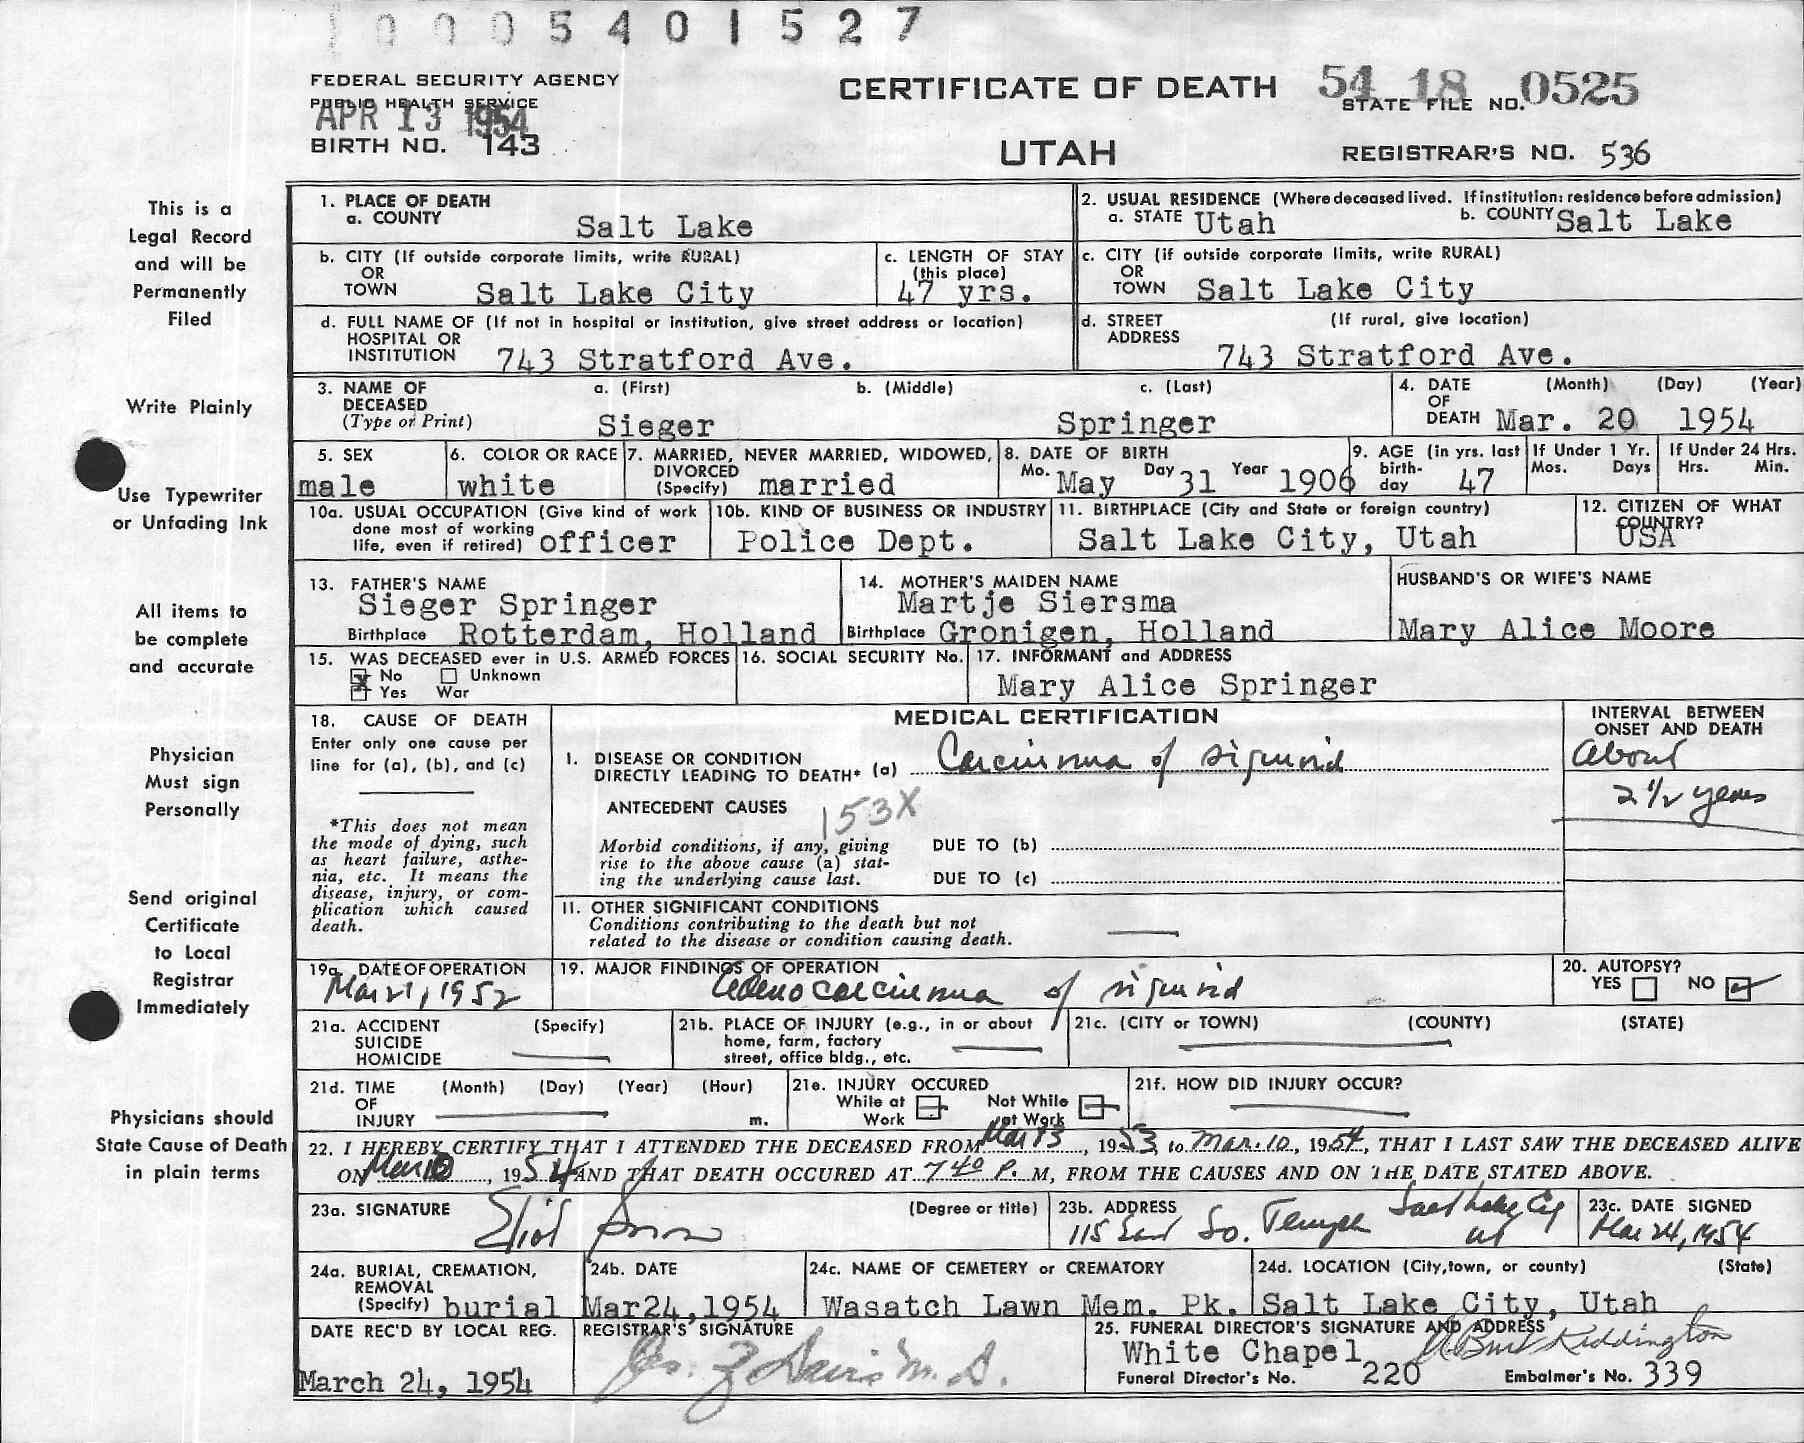 10005401527
FEDERAL SECURITY AGENCY
PUBLIC HEALTH SERVICE
APR 13 1954
BIRTH NO. 143
CERTIFICATE OF DEATH
UTAH
54 18 0525
STATE FILE NO.
REGISTRAR'S NO. 536
This is a
Legal Record
and will be
Permanently
Filed
Write Plainly
Use Typewriter
or Unfading Ink
All items to
be complete
and accurate
Physician
Must sign
Personally
Send original
Certificate
to Local
Registrar
Immediately
Physicians should
State Cause of Death
in plain terms
1. PLACE OF DEATH
a. COUNTY Salt Lake
2. USUAL RESIDENCE (Where deceased lived. If institution: residence before admission)
a. STATE Utah b. COUNTY Salt Lake
b. CITY (If outside corporate limits, write RURAL)
OR
TOWN Salt Lake City
c. LENGTH OF STAY
(this place)
47 yrs.
c. CITY (if outside corporate limits, write RURAL)
OR
TOWN Salt Lake City
d. FULL NAME OF (If not in hospital or institution, give street address or location)
HOSPITAL OR
INSTITUTION 743 Stratford Ave.
d. STREET (If rural, give location)
ADDRESS
743 Stratford Ave.
3. NAME OF a. (First) b. (Middle) c. (Last)
DECEASED
(Type or Print) Sieger Springer
4. DATE (Month) (Day) (Year)
OF
DEATH Mar. 20 1954
5. SEX
male
6. COLOR OR RACE
white
7. MARRIED, NEVER MARRIED, WIDOWED,
DIVORCED
(Specify) married
8. DATE OF BIRTH
Mo. May Day 31 Year 1906
9. AGE (in yrs. last
birth-
day 47
If Under 1 Yr.
Mos. Days
If Under 24 Hrs.
Hrs. Min.
10a. USUAL OCCUPATION (Give kind of work
done most of working
life, even if retired) officer
10b. KIND OF BUSINESS OR INDUSTRY
Police Dept.
11. BIRTHPLACE (City and State or foreign country)
Salt Lake City, Utah
12. CITIZEN OF WHAT
COUNTRY?
USA
13. FATHER'S NAME
Sieger Springer
Birthplace Rotterdam, Holland
14. MOTHER'S MAIDEN NAME
Martje Siersma
Birthplace Gronigen, Holland
HUSBAND'S OR WIFE'S NAME
Mary Alice Moore
15. WAS DECEASED ever in U.S. ARMED FORCES
No Unknown
Yes War
16. SOCIAL SECURITY No.
17. INFORMANT and ADDRESS
Mary Alice Springer
18. CAUSE OF DEATH
Enter only one cause per
line for (a), (b), and (c)
*This does not mean
the mode of dying, such
as heart failure, asthe-
nia, etc. It means the
disease, injury, or com-
plication which caused
death.
MEDICAL CERTIFICATION
I. DISEASE OR CONDITION
DIRECTLY LEADING TO DEATH* (a) Carcinoma of sigmoid
ANTECEDENT CAUSES 153X
Morbid conditions, if any, giving
rise to the above cause (a) stat-
ing the underlying cause last.
DUE TO (b)
DUE TO (c)
INTERVAL BETWEEN
ONSET AND DEATH
About
2 1/2 years
11. OTHER SIGNIFICANT CONDITIONS
Conditions contributing to the death but not
related to the disease or condition causing death.
19a. DATE OF OPERATION
Mar 21, 1952
19. MAJOR FINDINGS OF OPERATION
Adenocarcinoma of sigmoid
20. AUTOPSY?
YES NO
21a. ACCIDENT (Specify)
SUICIDE
HOMICIDE
21b. PLACE OF INJURY (e.g., in or about
home, farm, factory
street, office bldg., etc.
21c. (CITY or TOWN) (COUNTY) (STATE)
21d. TIME (Month) (Day) (Year) (Hour)
OF
INJURY m.
21e. INJURY OCCURED
While at Work
Not While at Work
21f. HOW DID INJURY OCCUR?
22. I HEREBY CERTIFY THAT I ATTENDED THE DECEASED FROM Mar 13, 1953 to Mar. 10, 1954, THAT I LAST SAW THE DECEASED ALIVE
ON Mar 10, 1954 AND THAT DEATH OCCURED AT 7:40 P. M, FROM THE CAUSES AND ON THE DATE STATED ABOVE.
23a. SIGNATURE (Degree or title)
Eliot
23b. ADDRESS
115 East So. Temple Salt Lake City Ut
23c. DATE SIGNED
Mar 24, 1954
24a. BURIAL, CREMATION,
REMOVAL
(Specify) burial
24b. DATE
Mar 24, 1954
24c. NAME OF CEMETERY or CREMATORY
Wasatch Lawn Mem. Pk.
24d. LOCATION (City, town, or county) (State)
Salt Lake City, Utah
DATE REC'D BY LOCAL REG.
March 24, 1954
REGISTRAR'S SIGNATURE
Geo. Z Davis M.D.
25. FUNERAL DIRECTOR'S SIGNATURE AND ADDRESS
White Chapel Kiddington
Funeral Director's No. 220 Embalmer's No. 339